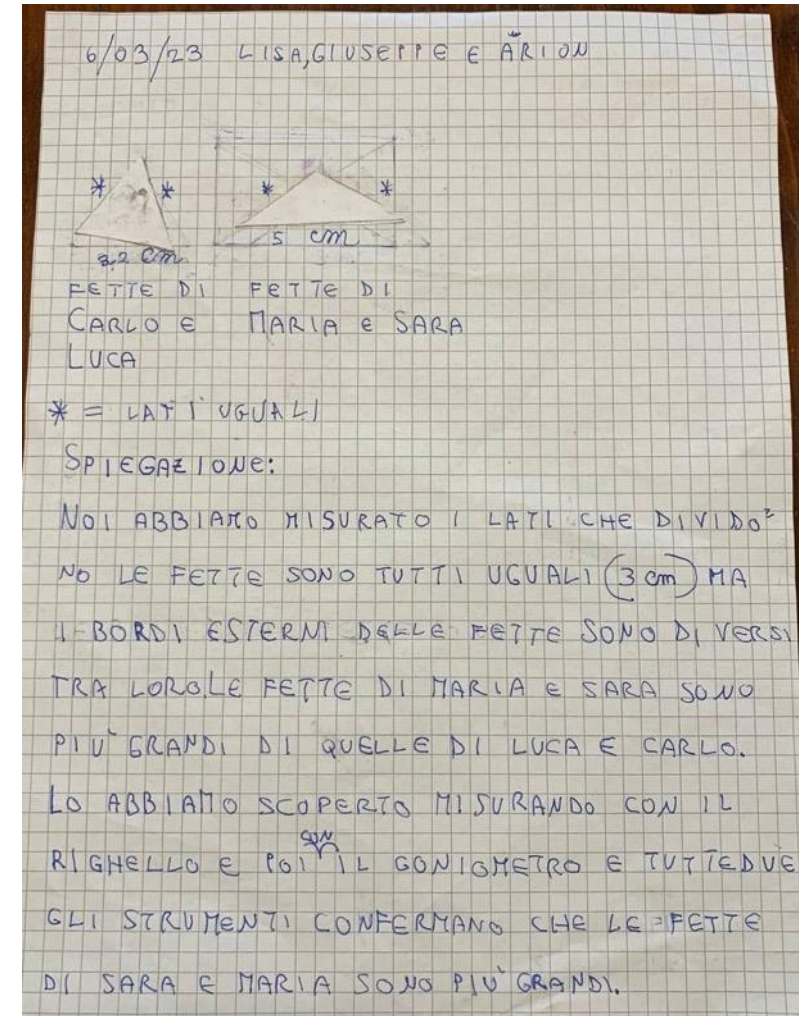 6/03/23 LISA, GIUSEPPE E ARION
* * * *
3,2 cm 5 cm
FETTE DI FETTE DI
CARLO E MARIA E SARA
LUCA
* = LATI UGUALI
SPIEGAZIONE:
NOI ABBIAMO MISURATO I LATI CHE DIVIDO=
NO LE FETTE SONO TUTTI UGUALI (3 cm) MA
I BORDI ESTERNI DELLE FETTE SONO DIVERSI
TRA LORO. LE FETTE DI MARIA E SARA SONO
PIU' GRANDI DI QUELLE DI LUCA E CARLO.
LO ABBIAMO SCOPERTO MISURANDO CON IL
RIGHELLO E POI CON IL GONIOMETRO E TUTTEDUE
GLI STRUMENTI CONFERMANO CHE LE FETTE
DI SARA E MARIA SONO PIU' GRANDI.